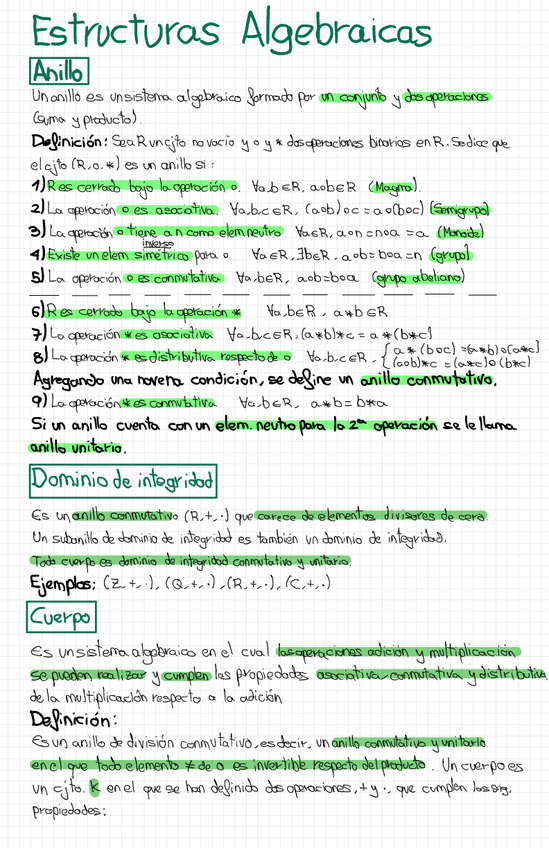 Estructuras Algebraicas
Anillo
Un anillo es un sistema algebraico formado por un conjunto y dos operaciones
(suma y producto).
Definición: Sea R un cjto no vacío y o y * dos operaciones binarias en R. Se dice que
el cjto (R, o, *) es un anillo si:
1) R es cerrado bajo la operación o. ∀a,b∈R, aob∈R (Magma).
2) La operación o es asociativa. ∀a,b,c∈R, (aob)oc = ao(boc) (Semigrupo)
3) La operación o tiene a n como elem neutro ∀a∈R, aon=noa =a (Monoide)
inverso
4) Existe un elem simétrico para o ∀a∈R, ∃b∈R, aob=boa=n (grupo)
5) La operación o es conmutativa ∀a,b∈R, aob=boa (grupo abeliano)
6) R es cerrado bajo la operación * ∀a,b∈R, a*b∈R
7) La operación * es asociativa ∀a,b,c∈R, (a*b)*c = a*(b*c)
8) La operación * es distributiva respecto de o ∀a,b,c∈R, { a*(boc) =(a*b)o(a*c)
(aob)*c =(a*c)o(b*c)
Agregando una novena condición, se define un anillo conmutativo.
9) La operación * es conmutativa ∀a,b∈R, a*b=b*a
Si un anillo cuenta con un elem. neutro para la 2ª operación se le llama
anillo unitario.
Dominio de integridad
Es un anillo conmutativo (R,+,·) que carece de elementos divisores de cero.
Un subanillo de dominio de integridad es también un dominio de integridad.
Todo cuerpo es dominio de integridad conmutativo y unitario.
Ejemplos: (Z,+,·), (Q,+,·), (R,+,·), (C,+,·)
Cuerpo
Es un sistema algebraico en el cual las operaciones adición y multiplicación
se pueden realizar y cumplen las propiedades asociativa-conmutativa y distributiva
de la multiplicación respecto a la adición
Definición:
Es un anillo de división conmutativo, es decir, un anillo conmutativo y unitario
en el que todo elemento ≠ de 0 es invertible respecto del producto. Un cuerpo es
un cjto. K en el que se han definido dos operaciones, + y ·, que cumplen las sig.
propiedades: